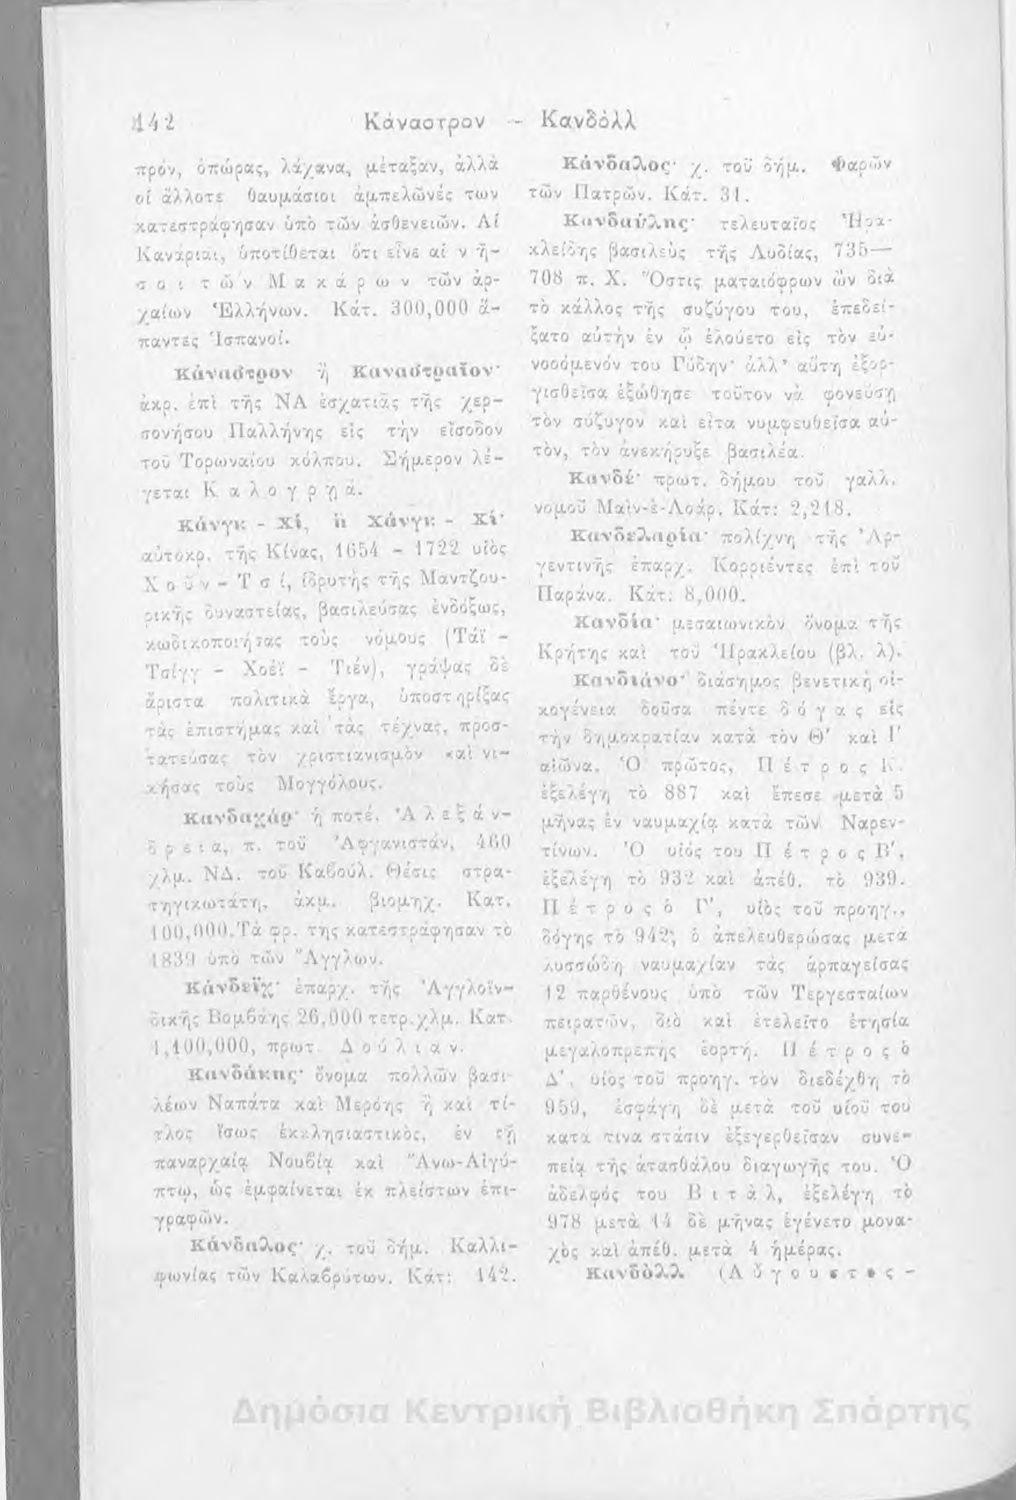 142 Κάναστρον - Κανδόλλ
πρόν, ὀπώρας, λάχανα, μέταξαν, ἀλλὰ
οἱ ἄλλοτε θαυμάσιοι ἀμπελῶνές των
κατεστράφησαν ὑπὸ τῶν ἀσθενειῶν. Αἱ
Κανάριαι, ὑποτίθεται ὅτι εἶνε αἱ νῆ-
σοι τῶν Μακάρων τῶν ἀρ-
χαίων Ἑλλήνων. Κάτ. 300,000 ἅ-
παντες Ἱσπανοί.
Κάναστρον ἢ Καναστραῖον·
ἀκρ. ἐπὶ τῆς ΝΑ ἐσχατιᾶς τῆς χερ-
σονήσου Παλλήνης εἰς τὴν εἴσοδον
τοῦ Τορωναίου κόλπου. Σήμερον λέ-
γεται Καλογρῃά.
Κάνγκ - Χί, ἢ Χάνγκ - Χί·
αὐτοκρ. τῆς Κίνας, 1654 - 1722 υἱὸς
Χοῦν - Τσί, ἱδρυτὴς τῆς Μαντζου-
ρικῆς δυναστείας, βασιλεύσας ἐνδόξως,
κωδικοποιήσας τοὺς νόμους (Τάϊ -
Τσίγγ - Χοέϊ - Τιέν), γράψας δὲ
ἄριστα πολιτικὰ ἔργα, ὑποστηρίξας
τὰς ἐπιστήμας καὶ τὰς τέχνας, προσ-
τατεύσας τὸν χριστιανισμὸν καὶ νι-
κήσας τοὺς Μογγόλους.
Κανδαχάρ· ἡ ποτέ. Ἀλεξάν-
δρεια, π. τοῦ Ἀφγανιστάν, 460
χλμ. ΝΔ. τοῦ Καβούλ. Θέσις στρα-
τηγικωτάτη, ἀκμ. βιομηχ. Κατ.
100,000. Τὰ φρ. της κατεστράφησαν τὸ
1839 ὑπὸ τῶν Ἄγγλων.
Κάνδεϊχ· ἐπαρχ. τῆς Ἀγγλοϊν-
δικῆς Βομβάης 26,000 τετρ. χλμ. Κατ.
1,100,000, πρωτ. Δούλιαν.
Κανδάκης· ὄνομα πολλῶν βασι-
λέων Ναπάτα καὶ Μερόης ἢ καὶ τί-
τλος ἴσως ἐκκλησιαστικὸς, ἐν τῇ
παναρχαίᾳ Νουβίᾳ καὶ Ἄνω-Αἰγύ-
πτῳ, ὡς ἐμφαίνεται ἐκ πλείστων ἐπι-
γραφῶν.
Κάνδαλος· χ. τοῦ δήμ. Καλλι-
φωνίας τῶν Καλαβρύτων. Κάτ: 142.
Κάνδαλος· χ. τοῦ δήμ. Φαρῶν
τῶν Πατρῶν. Κάτ. 31.
Κανδαύλης· τελευταῖος Ἡρα-
κλείδης βασιλεὺς τῆς Λυδίας, 735—
708 π. Χ. Ὅστις ματαιόφρων ὢν διὰ
τὸ κάλλος τῆς συζύγου του, ἐπεδεί-
ξατο αὐτὴν ἐν ᾧ ἐλούετο εἰς τὸν εὐ-
νοούμενόν του Γύδην· ἀλλ' αὕτη ἐξορ-
γισθεῖσα ἐξώθησε τοῦτον νὰ φονεύσῃ
τὸν σύζυγον καὶ εἶτα νυμφευθεῖσα αὐ-
τὸν, τὸν ἀνεκήρυξε βασιλέα.
Κανδέ· πρωτ. δήμου τοῦ γαλλ.
νομοῦ Μαὶν-ὲ-Λοάρ. Κάτ: 2,218.
Κανδελαρία· πολίχνη τῆς Ἀρ-
γεντινῆς ἐπαρχ. Κορριέντες ἐπὶ τοῦ
Παράνα. Κάτ: 8,000.
Κανδία· μεσαιωνικὸν ὄνομα τῆς
Κρήτης καὶ τοῦ Ἡρακλείου (βλ. λ).
Κανδιάνο· διάσημος βενετικὴ οἰ-
κογένεια δοῦσα πέντε δόγας εἰς
τὴν δημοκρατίαν κατὰ τὸν Θ' καὶ Ι'
αἰῶνα. Ὁ πρῶτος, Πέτρος Κ.
ἐξελέγη τὸ 887 καὶ ἔπεσε μετὰ 5
μῆνας ἐν ναυμαχίᾳ κατὰ τῶν Ναρεν-
τίνων. Ὁ υἱός του Πέτρος Β',
ἐξελέγη τὸ 932 καὶ ἀπέθ. τὸ 939.
Πέτρος ὁ Γ', υἱὸς τοῦ προηγ.,
δόγης τὸ 942, ὁ ἀπελευθερώσας μετὰ
λυσσώδη ναυμαχίαν τὰς ἁρπαγείσας
12 παρθένους ὑπὸ τῶν Τεργεσταίων
πειρατῶν, διὸ καὶ ἐτελεῖτο ἐτησία
μεγαλοπρεπὴς ἑορτή. Πέτρος ὁ
Δ', υἱὸς τοῦ προηγ. τὸν διεδέχθη τὸ
959, ἐσφάγη δὲ μετὰ τοῦ υἱοῦ του
κατά τινα στάσιν ἐξεγερθεῖσαν συνε-
πείᾳ τῆς ἀτασθάλου διαγωγῆς του. Ὁ
ἀδελφός του Βιτάλ, ἐξελέγη τὸ
978 μετὰ 14 δὲ μῆνας ἐγένετο μονα-
χὸς καὶ ἀπέθ. μετὰ 4 ἡμέρας.
Κανδὸλλ (Αὔγουστος -
Δημόσια Κεντρική Βιβλιοθήκη Σπάρτης